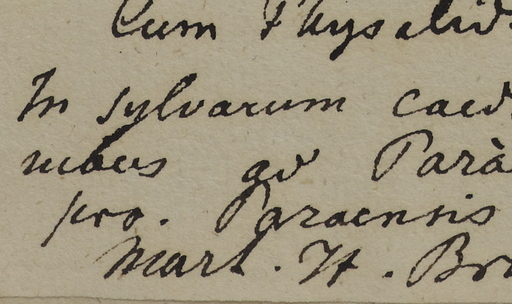 Cum Physalid
In sylvarum caed
uabus ad Parà
pro. Paraensis
Mart. It. Br